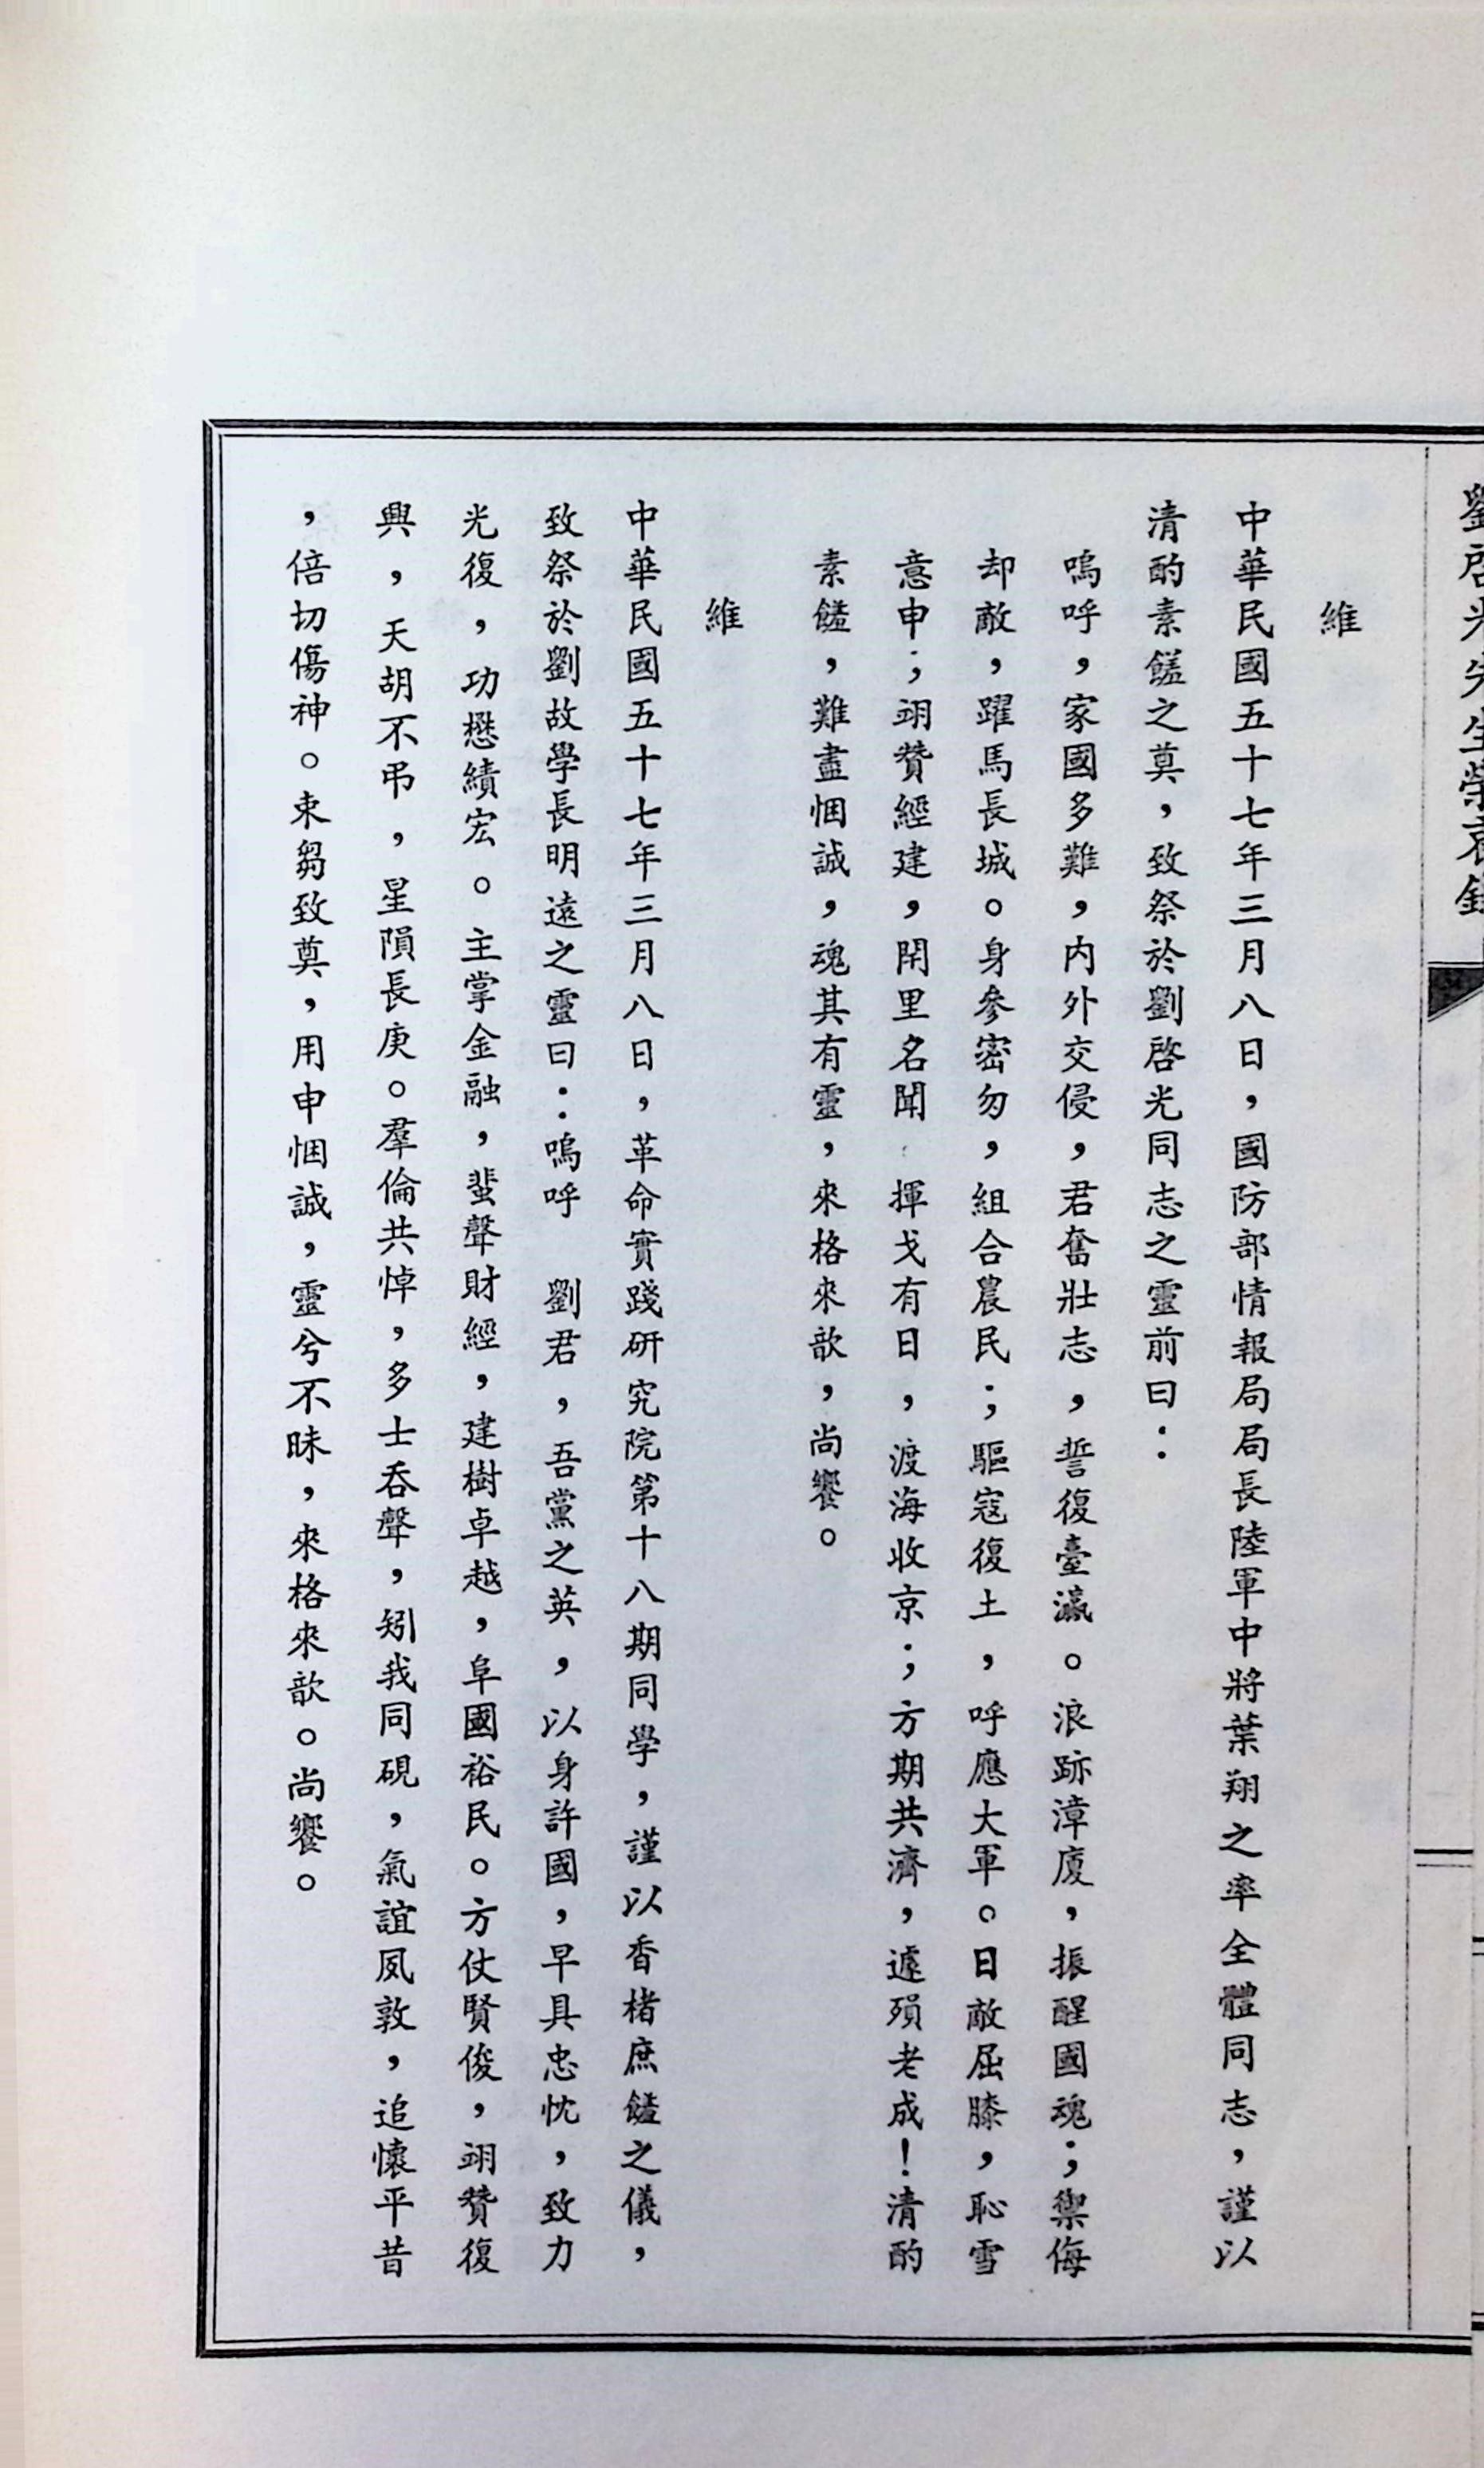 劉啓光先生榮哀錄
維
中華民國五十七年三月八日，國防部情報局局長陸軍中將葉翔之率全體同志，謹以
清酌素饈之奠，致祭於劉啓光同志之靈前曰：
嗚呼，家國多難，內外交侵，君奮壯志，誓復臺瀛。浪跡漳廈，振醒國魂；禦侮
却敵，躍馬長城。身參密勿，組合農民；驅寇復土，呼應大軍。日敵屈膝，恥雪
意申；翊贊經建，閈里名聞 揮戈有日，渡海收京；方期共濟，遽殞老成！清酌
素饈，難盡悃誠，魂其有靈，來格來歆，尚饗。
維
中華民國五十七年三月八日，革命實踐研究院第十八期同學，謹以香楮庶饈之儀，
致祭於劉故學長明遠之靈曰：嗚呼 劉君，吾黨之英，以身許國，早具忠忱，致力
光復，功懋績宏。主掌金融，蜚聲財經，建樹卓越，阜國裕民。方仗賢俊，翊贊復
興，天胡不弔，星隕長庚。羣倫共悼，多士吞聲，矧我同硯，氣誼夙敦，追懷平昔
，倍切傷神。束芻致奠，用申悃誠，靈兮不昧，來格來歆。尚饗。